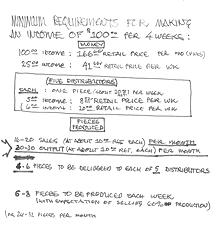 MINIMUM REQUIREMENTS FOR MAKING
AN INCOME OF $100.00 PER 4 WEEKS:
MONEY
100.00 INCOME: 166.00 RETAIL PRICE PER MO (4 WKS)
25.00 INCOME: 41 RETAIL PRICE PER WK
FIVE DISTRIBUTORS
EARN: ONE PIECE (ABOUT RET) PER WK
5.00 INCOME: RETAIL PRICE PER WK
INCOME: RETAIL PRICE PER WK
PIECES PRODUCED
16-20 SALES (AT ABOUT 10.00 RET EACH) PER MONTH
20-30 OUTPUT (AT ABOUT 10.00 RET. EACH) PER MONTH
4-6 PIECES TO BE DELIVERED TO EACH OF 5 DISTRIBUTORS
6-8 PIECES TO BE PRODUCED EACH WEEK
(WITH EXPECTATION OF SELLING 60% OF PRODUCTION)
(OR 24-32 PIECES PER MONTH